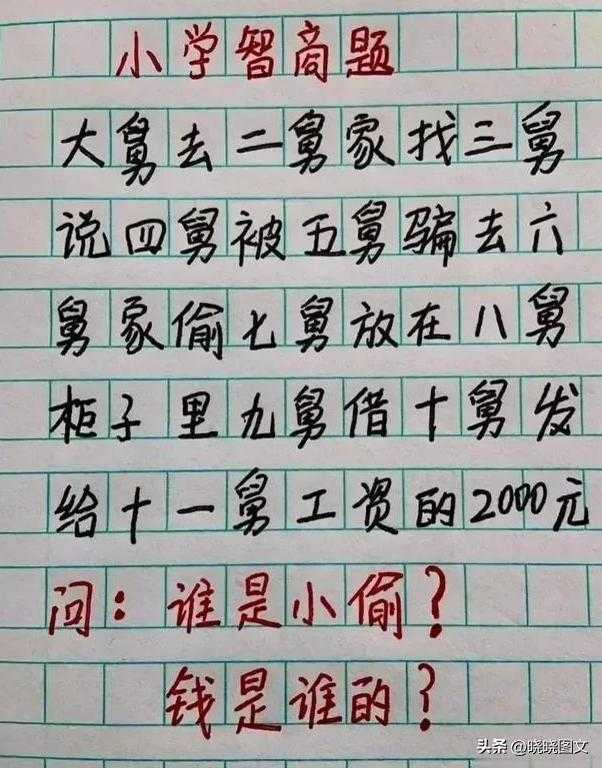 小学智商题
大舅去二舅家找三舅
说四舅被五舅骗去六
舅家偷七舅放在八舅
柜子里九舅借十舅发
给十一舅工资的2000元
问：谁是小偷？
钱是谁的？
头条 @晓晓图文